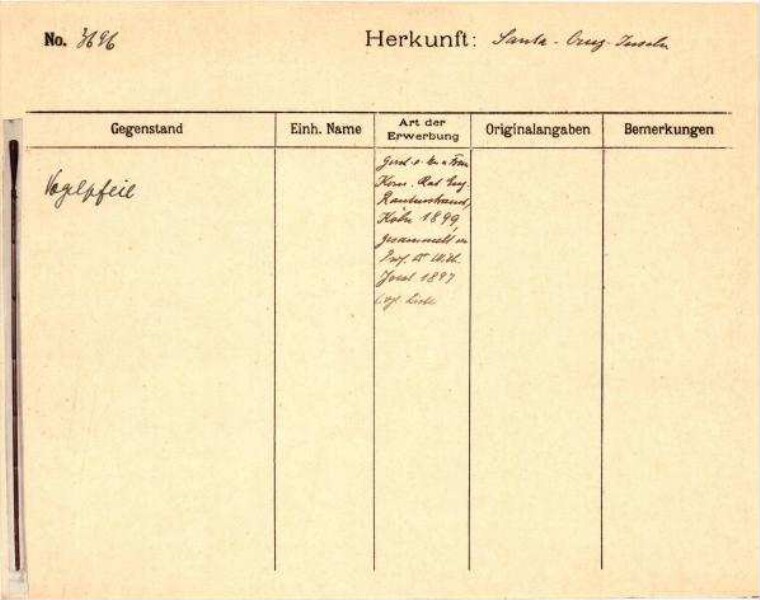 No. 3696
Herkunft: Santa-Cruz-Inseln
Gegenstand
Einh. Name
Art der Erwerbung
Originalangaben
Bemerkungen
Vogelpfeil
Gesch. v. Frau
Kom. Rat Eug.
Rautenstrauch,
Köln 1899,
gesammelt v.
Prof. Dr. Wilh.
Joest 1897
(vgl. Liste